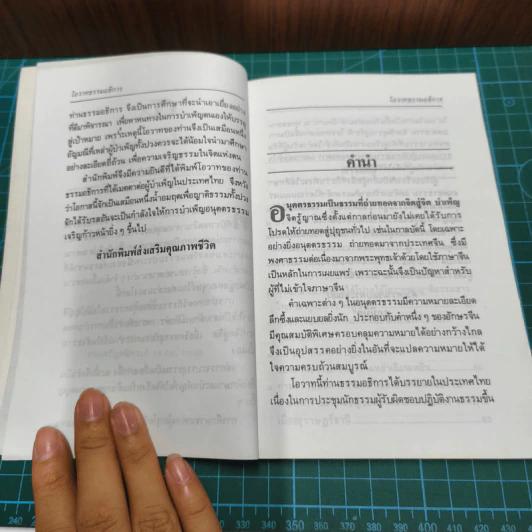 โอวาทธรรมอธิการ
ท่านธรรมอธิการ จึงเป็นการศึกษาที่จะนำเอาเยี่ยงอย่าง
ที่ดีมาพิจารณา เพื่อหาหนทางในการบำเพ็ญตนเองให้บรรลุ
สู่เป้าหมาย เพราะเหตุนี้โอวาทของท่านจึงเป็นเสมือนหนึ่ง
อัญมณีที่เหล่าผู้บำเพ็ญทั้งปวงควรจะได้น้อมใจนำมาศึกษา
อย่างละเอียดถี่ถ้วน เพื่อความเจริญธรรมในจิตแห่งตน
สำนักพิมพ์จึงมีความยินดีที่ได้พิมพ์โอวาทของท่าน
ธรรมอธิการที่ได้เมตตาต่อผู้บำเพ็ญในประเทศไทย จึงหวัง
ว่าโอกาสนี้จักเป็นเสมือนหนึ่งน้ำอมฤตเพื่อญาติธรรมทั้งปวง
จักได้รับรสอันจะเป็นกำลังใจให้การบำเพ็ญอนุตตรธรรม
เจริญก้าวหน้ายิ่ง ๆ ขึ้นไป
สำนักพิมพ์ส่งเสริมคุณภาพชีวิต
โอวาทธรรมอธิการ
คำนำ
อนุตตรธรรมเป็นธรรมที่ถ่ายทอดจากจิตสู่จิต บำเพ็ญ
จิตรู้ญาณซึ่งตั้งแต่กาลก่อนมายังไม่เคยได้รับการ
โปรดให้ถ่ายทอดสู่ปุถุชนทั่วไป เช่นในกาลบัดนี้ โดยเฉพาะ
อย่างยิ่งอนุตตรธรรม ถ่ายทอดมาจากประเทศจีน ซึ่งมี
พงศาธรรมต่อเนื่องมาจากพระพุทธเจ้าด้วยโดยใช้ภาษาจีน
เป็นหลักในการเผยแพร่ เพราะฉะนั้นจึงเป็นปัญหาสำหรับ
ผู้ที่ไม่เข้าใจภาษาจีน
คำเฉพาะต่าง ๆ ในอนุตตรธรรมมีความหมายละเอียด
ลึกซึ้งและแยบยลยิ่งนัก ประกอบกับคำหนึ่ง ๆ ของอักษรจีน
มีคุณสมบัติพิเศษครอบคลุมความหมายได้อย่างกว้างไกล
จึงเป็นอุปสรรคอย่างยิ่งในอันที่จะแปลความหมายให้ได้
ใจความครบถ้วนสมบูรณ์
โอวาทนี้ท่านธรรมอธิการได้บรรยายในประเทศไทย
เนื่องในการประชุมนักธรรมผู้รับผิดชอบปฏิบัติงานธรรมขึ้น
240
300
310
320
330
340
350
360
370
380
390
400
410